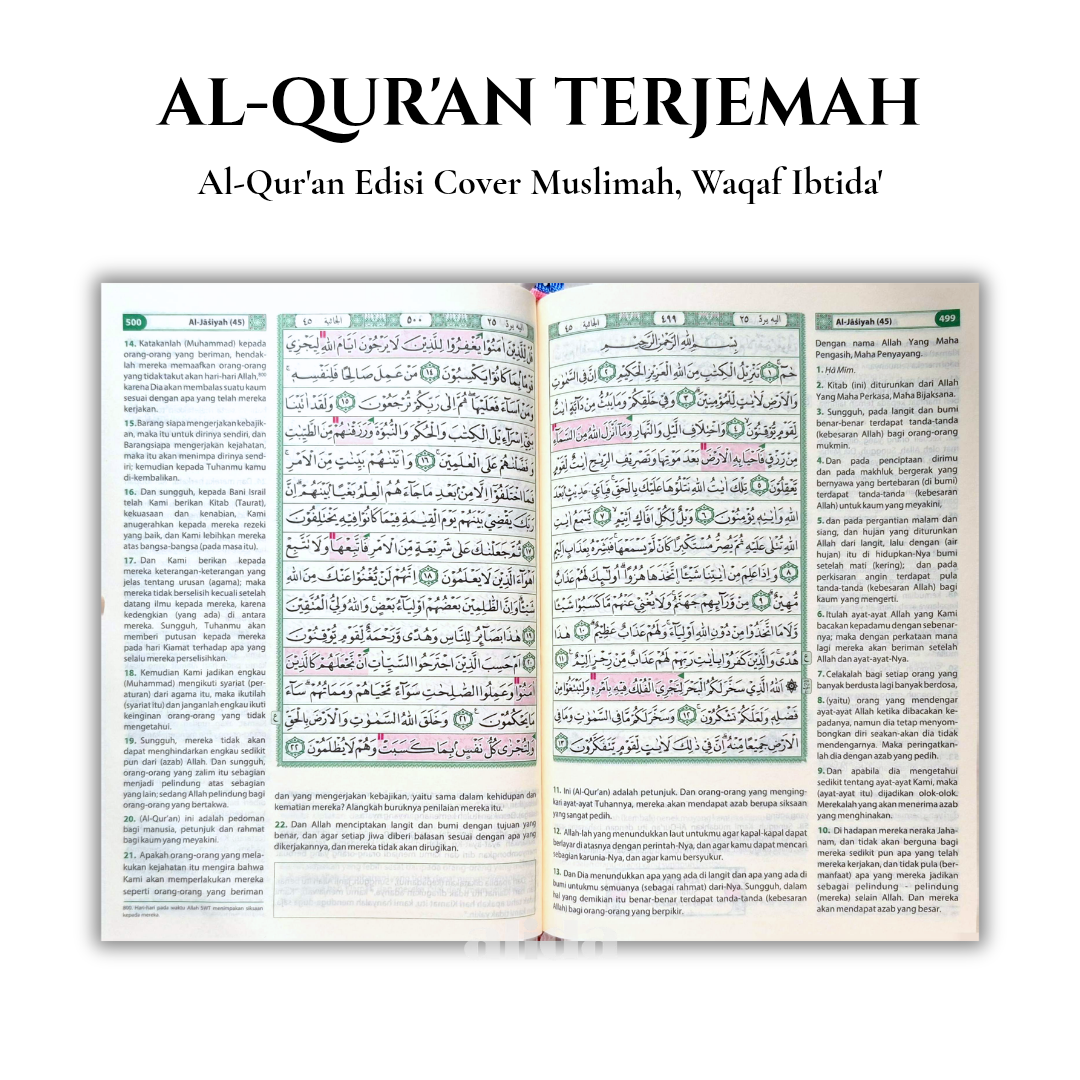 AL-QUR'AN TERJEMAH
Al-Qur'an Edisi Cover Muslimah, Waqaf Ibtida'
الجاثية ٤٥
٤٩٩
اليه يرد ٢٥
بِسْمِ اللّٰهِ الرَّحْمٰنِ الرَّحِيْمِ
حٰمۤ ۚ ١ تَنْزِيْلُ الْكِتٰبِ مِنَ اللّٰهِ الْعَزِيْزِ الْحَكِيْمِ ٢ اِنَّ فِى السَّمٰوٰتِ
وَالْاَرْضِ لَاٰيٰتٍ لِّلْمُؤْمِنِيْنَ ۗ ٣ وَفِيْ خَلْقِكُمْ وَمَا يَبُثُّ مِنْ دَاۤبَّةٍ اٰيٰتٌ
لِّقَوْمٍ يُّوْقِنُوْنَ ۙ ٤ وَاخْتِلَافِ الَّيْلِ وَالنَّهَارِ وَمَآ اَنْزَلَ اللّٰهُ مِنَ السَّمَاۤءِ
مِنْ رِّزْقٍ فَاَحْيَا بِهِ الْاَرْضَ بَعْدَ مَوْتِهَا وَتَصْرِيْفِ الرِّيٰحِ اٰيٰتٌ لِّقَوْمٍ
يَّعْقِلُوْنَ ٥ تِلْكَ اٰيٰتُ اللّٰهِ نَتْلُوْهَا عَلَيْكَ بِالْحَقِّۚ فَبِاَيِّ حَدِيْثٍۢ بَعْدَ
اللّٰهِ وَاٰيٰتِهٖ يُؤْمِنُوْنَ ٦ وَيْلٌ لِّكُلِّ اَفَّاكٍ اَثِيْمٍۙ ٧ يَّسْمَعُ اٰيٰتِ
اللّٰهِ تُتْلٰى عَلَيْهِ ثُمَّ يُصِرُّ مُسْتَكْبِرًا كَاَنْ لَّمْ يَسْمَعْهَاۚ فَبَشِّرْهُ بِعَذَابٍ اَلِيْمٍ
٨ وَاِذَا عَلِمَ مِنْ اٰيٰتِنَا شَيْـًٔا ۨاتَّخَذَهَا هُزُوًاۗ اُولٰۤىِٕكَ لَهُمْ عَذَابٌ
مُّهِيْنٌۗ ٩ مِنْ وَّرَاۤىِٕهِمْ جَهَنَّمُ ۚوَلَا يُغْنِيْ عَنْهُمْ مَّا كَسَبُوْا شَيْـًٔا
وَّلَا مَا اتَّخَذُوْا مِنْ دُوْنِ اللّٰهِ اَوْلِيَاۤءَۚ وَلَهُمْ عَذَابٌ عَظِيْمٌۗ ١٠ هٰذَا
هُدًىۚ وَالَّذِيْنَ كَفَرُوْا بِاٰيٰتِ رَبِّهِمْ لَهُمْ عَذَابٌ مِّنْ رِّجْزٍ اَلِيْمٌ ١١
۞ اَللّٰهُ الَّذِيْ سَخَّرَ لَكُمُ الْبَحْرَ لِتَجْرِيَ الْفُلْكُ فِيْهِ بِاَمْرِهٖ وَلِتَبْتَغُوْا مِنْ
فَضْلِهٖ وَلَعَلَّكُمْ تَشْكُرُوْنَۚ ١٢ وَسَخَّرَ لَكُمْ مَّا فِى السَّمٰوٰتِ وَمَا فِى
الْاَرْضِ جَمِيْعًا مِّنْهُ ۗاِنَّ فِيْ ذٰلِكَ لَاٰيٰتٍ لِّقَوْمٍ يَّتَفَكَّرُوْنَ ١٣
Al-Jāṡiyah (45)
499
Dengan nama Allah Yang Maha
Pengasih, Maha Penyayang.
1. Hā Mīm.
2. Kitab (ini) diturunkan dari Allah
Yang Maha Perkasa, Maha Bijaksana.
3. Sungguh, pada langit dan bumi
benar-benar terdapat tanda-tanda
(kebesaran Allah) bagi orang-orang
mukmin.
4. Dan pada penciptaan dirimu
dan pada makhluk bergerak yang
bernyawa yang bertebaran (di bumi)
terdapat tanda-tanda (kebesaran
Allah) untuk kaum yang meyakini,
5. dan pada pergantian malam dan
siang, dan hujan yang diturunkan
Allah dari langit, lalu dengan (air
hujan) itu di hidupkan-Nya bumi
setelah mati (kering); dan pada
perkisaran angin terdapat pula
tanda-tanda (kebesaran Allah) bagi
kaum yang mengerti.
6. Itulah ayat-ayat Allah yang Kami
bacakan kepadamu dengan sebenar-
nya; maka dengan perkataan mana
lagi mereka akan beriman setelah
Allah dan ayat-ayat-Nya.
7. Celakalah bagi setiap orang yang
banyak berdusta lagi banyak berdosa,
8. (yaitu) orang yang mendengar
ayat-ayat Allah ketika dibacakan ke-
padanya, namun dia tetap menyom-
bongkan diri seakan-akan dia tidak
mendengarnya. Maka peringatkan-
lah dia dengan azab yang pedih.
9. Dan apabila dia mengetahui
sedikit tentang ayat-ayat Kami, maka
(ayat-ayat itu) dijadikan olok-olok.
Merekalah yang akan menerima azab
yang menghinakan.
10. Di hadapan mereka neraka Jaha-
nam, dan tidak akan berguna bagi
mereka sedikit pun apa yang telah
mereka kerjakan, dan tidak pula (ber-
manfaat) apa yang mereka jadikan
sebagai pelindung - pelindung
(mereka) selain Allah. Dan mereka
akan mendapat azab yang besar.
11. Ini (Al-Qur'an) adalah petunjuk. Dan orang-orang yang menging-
kari ayat-ayat Tuhannya, mereka akan mendapat azab berupa siksaan
yang sangat pedih.
12. Allah-lah yang menundukkan laut untukmu agar kapal-kapal dapat
berlayar di atasnya dengan perintah-Nya, dan agar kamu dapat mencari
sebagian karunia-Nya, dan agar kamu bersyukur.
13. Dan Dia menundukkan apa yang ada di langit dan apa yang ada di
bumi untukmu semuanya (sebagai rahmat) dari-Nya. Sungguh, dalam
hal yang demikian itu benar-benar terdapat tanda-tanda (kebesaran
Allah) bagi orang-orang yang berpikir.
الجاثية ٤٥
٥٠٠
اليه يرد ٢٥
قُلْ لِّلَّذِيْنَ اٰمَنُوْا يَغْفِرُوْا لِلَّذِيْنَ لَا يَرْجُوْنَ اَيَّامَ اللّٰهِ لِيَجْزِيَ
قَوْمًاۢ بِمَا كَانُوْا يَكْسِبُوْنَ ١٤ مَنْ عَمِلَ صَالِحًا فَلِنَفْسِهٖۚ
وَمَنْ اَسَاۤءَ فَعَلَيْهَا ۖ ثُمَّ اِلٰى رَبِّكُمْ تُرْجَعُوْنَ ١٥ وَلَقَدْ اٰتَيْنَا
بَنِيْٓ اِسْرَاۤءِيْلَ الْكِتٰبَ وَالْحُكْمَ وَالنُّبُوَّةَ وَرَزَقْنٰهُمْ مِّنَ الطَّيِّبٰتِ
وَفَضَّلْنٰهُمْ عَلَى الْعٰلَمِيْنَ ۚ ١٦ وَاٰتَيْنٰهُمْ بَيِّنٰتٍ مِّنَ الْاَمْرِۚ
فَمَا اخْتَلَفُوْٓا اِلَّا مِنْۢ بَعْدِ مَا جَاۤءَهُمُ الْعِلْمُ بَغْيًاۢ بَيْنَهُمْ ۗاِنَّ
رَبَّكَ يَقْضِيْ بَيْنَهُمْ يَوْمَ الْقِيٰمَةِ فِيْمَا كَانُوْا فِيْهِ يَخْتَلِفُوْنَ
١٧ ثُمَّ جَعَلْنٰكَ عَلٰى شَرِيْعَةٍ مِّنَ الْاَمْرِ فَاتَّبِعْهَا وَلَا تَتَّبِعْ
اَهْوَاۤءَ الَّذِيْنَ لَا يَعْلَمُوْنَ ١٨ اِنَّهُمْ لَنْ يُّغْنُوْا عَنْكَ مِنَ اللّٰهِ
شَيْـًٔاۗ وَاِنَّ الظّٰلِمِيْنَ بَعْضُهُمْ اَوْلِيَاۤءُ بَعْضٍۚ وَاللّٰهُ وَلِيُّ الْمُتَّقِيْنَ
١٩ هٰذَا بَصَاۤىِٕرُ لِلنَّاسِ وَهُدًى وَّرَحْمَةٌ لِّقَوْمٍ يُّوْقِنُوْنَ
٢٠ اَمْ حَسِبَ الَّذِيْنَ اجْتَرَحُوا السَّيِّاٰتِ اَنْ نَّجْعَلَهُمْ كَالَّذِيْنَ
اٰمَنُوْا وَعَمِلُوا الصّٰلِحٰتِ سَوَاۤءً مَّحْيَاهُمْ وَمَمَاتُهُمْ ۗسَاۤءَ
مَا يَحْكُمُوْنَ ٢١ وَخَلَقَ اللّٰهُ السَّمٰوٰتِ وَالْاَرْضَ بِالْحَقِّ
وَلِتُجْزٰى كُلُّ نَفْسٍۢ بِمَا كَسَبَتْ وَهُمْ لَا يُظْلَمُوْنَ ٢٢
500
Al-Jāṡiyah (45)
14. Katakanlah (Muhammad) kepada
orang-orang yang beriman, hendak-
lah mereka memaafkan orang-orang
yang tidak takut akan hari-hari Allah,⁸⁰⁰
karena Dia akan membalas suatu kaum
sesuai dengan apa yang telah mereka
kerjakan.
15.Barang siapa mengerjakan kebajik-
an, maka itu untuk dirinya sendiri, dan
Barangsiapa mengerjakan kejahatan,
maka itu akan menimpa dirinya send-
iri; kemudian kepada Tuhanmu kamu
di-kembalikan.
16. Dan sungguh, kepada Bani Israil
telah Kami berikan Kitab (Taurat),
kekuasaan dan kenabian, Kami
anugerahkan kepada mereka rezeki
yang baik, dan Kami lebihkan mereka
atas bangsa-bangsa (pada masa itu).
17. Dan Kami berikan kepada
mereka keterangan-keterangan yang
jelas tentang urusan (agama); maka
mereka tidak berselisih kecuali setelah
datang ilmu kepada mereka, karena
kedengkian (yang ada) di antara
mereka. Sungguh, Tuhanmu akan
memberi putusan kepada mereka
pada hari Kiamat terhadap apa yang
selalu mereka perselisihkan.
18. Kemudian Kami jadikan engkau
(Muhammad) mengikuti syariat (per-
aturan) dari agama itu, maka ikutilah
(syariat itu) dan janganlah engkau ikuti
keinginan orang-orang yang tidak
mengetahui.
19. Sungguh, mereka tidak akan
dapat menghindarkan engkau sedikit
pun dari (azab) Allah. Dan sungguh,
orang-orang yang zalim itu sebagian
menjadi pelindung atas sebagian
yang lain; sedang Allah pelindung bagi
orang-orang yang bertakwa.
20. (Al-Qur'an) ini adalah pedoman
bagi manusia, petunjuk dan rahmat
bagi kaum yang meyakini.
21. Apakah orang-orang yang mela-
kukan kejahatan itu mengira bahwa
Kami akan memperlakukan mereka
seperti orang-orang yang beriman
800. Hari-hari pada waktu Allah SWT menimpakan siksaan
kepada mereka
dan yang mengerjakan kebajikan, yaitu sama dalam kehidupan dan
kematian mereka? Alangkah buruknya penilaian mereka itu.
22. Dan Allah menciptakan langit dan bumi dengan tujuan yang
benar, dan agar setiap jiwa diberi balasan sesuai dengan apa yang
dikerjakannya, dan mereka tidak akan dirugikan.